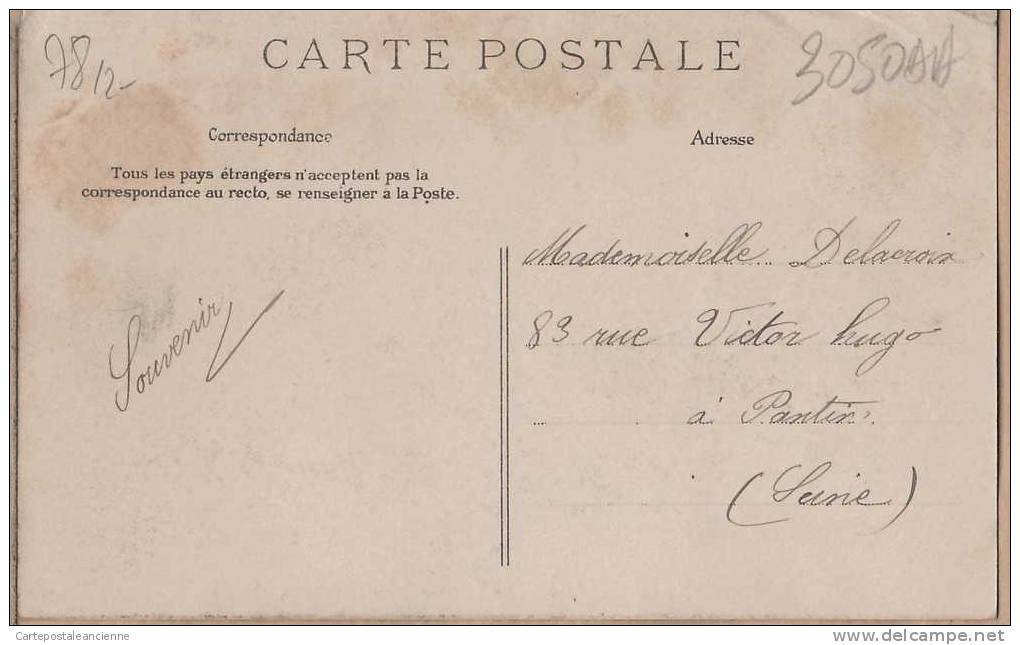 78/2-
CARTE POSTALE
3050AA
Correspondance
Adresse
Tous les pays étrangers n'acceptent pas la
correspondance au recto, se renseigner à la Poste.
Souvenir
Mademoiselle Delacroix
83 rue Victor hugo
à Pantin
(Seine)
Cartepostaleancienne
www.delcampe.net